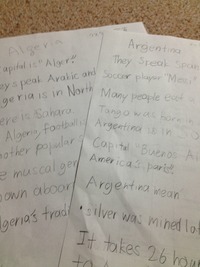 Algeria
Capital is "Alger."
They speak Arabic and
Algeria is in North
There is Sahara
Algeria, football is
another popular
muscal gen
own aboar
Algeria's tradi
Argentina
They speak Span
Soccer player "Messi"
Many people eat
Tango was born in
Argentina is in
Capital "Buenos Ai
America's part
Argentina mean
• silver was mined lot
It takes 26 hour
to